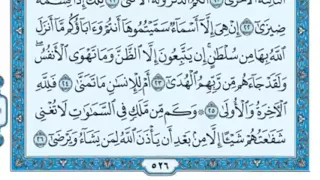 ضِيزَىٰٓ ٢٢ إِنْ هِىَ إِلَّآ أَسْمَآءٌ سَمَّيْتُمُوهَآ أَنتُمْ وَءَابَآؤُكُم مَّآ أَنزَلَ
ٱللَّهُ بِهَا مِن سُلْطَٰنٍ ۚ إِن يَتَّبِعُونَ إِلَّا ٱلظَّنَّ وَمَا تَهْوَى ٱلْأَنفُسُ ۖ
وَلَقَدْ جَآءَهُم مِّن رَّبِّهِمُ ٱلْهُدَىٰٓ ٢٣ أَمْ لِلْإِنسَٰنِ مَا تَمَنَّىٰ ٢٤ فَلِلَّهِ
ٱلْءَاخِرَةُ وَٱلْأُولَىٰ ٢٥ وَكَم مِّن مَّلَكٍ فِى ٱلسَّمَٰوَٰتِ لَا تُغْنِى
شَفَٰعَتُهُمْ شَيْـًٔا إِلَّا مِنۢ بَعْدِ أَن يَأْذَنَ ٱللَّهُ لِمَن يَشَآءُ وَيَرْضَىٰٓ ٢٦
٥٢٦